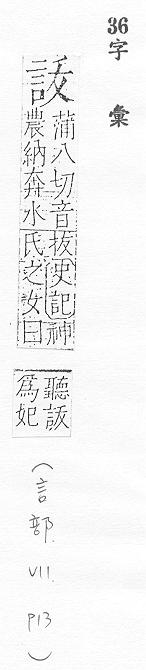 36字 彙
詙
蒲八切音拔史記神
農納奔水氏之女曰
聽詙
爲妃
(言部. VII. P13)